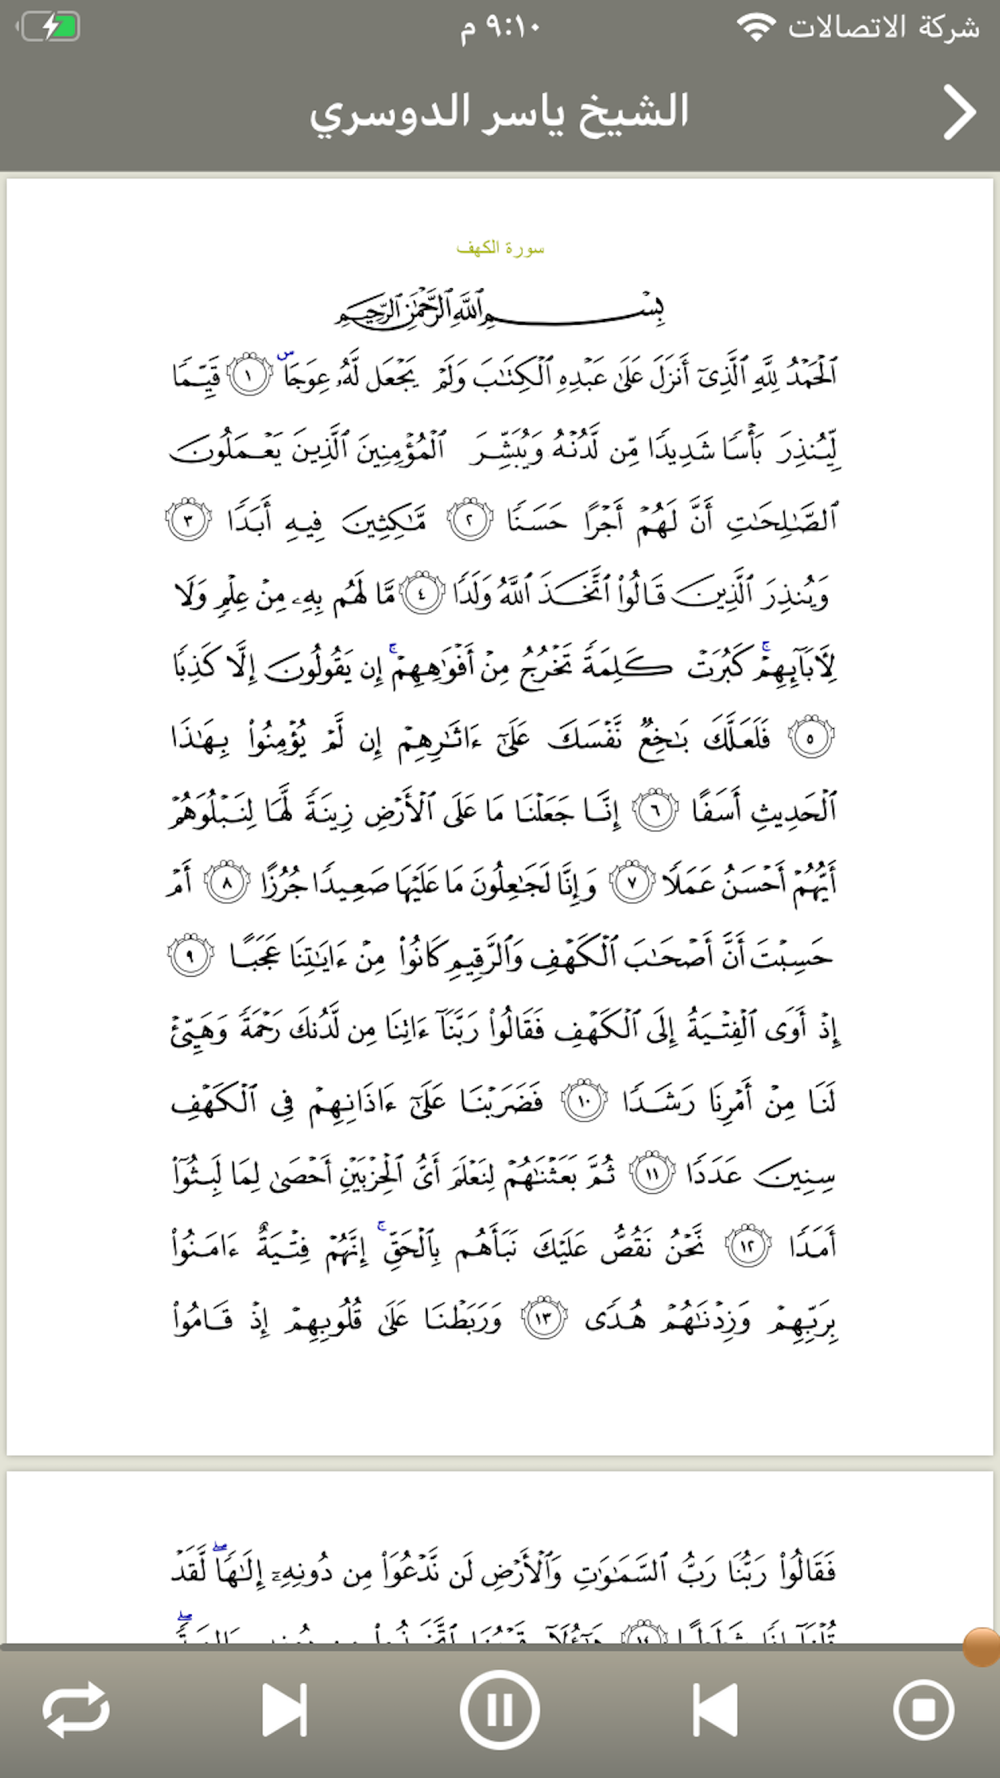 شركة الاتصالات ٩:١٠ م
الشيخ ياسر الدوسري
سورة الكهف
بِسْمِ ٱللَّهِ ٱلرَّحْمَٰنِ ٱلرَّحِيمِ
ٱلْحَمْدُ لِلَّهِ ٱلَّذِىٓ أَنزَلَ عَلَىٰ عَبْدِهِ ٱلْكِتَٰبَ وَلَمْ يَجْعَل لَّهُۥ عِوَجَاۜ ١ قَيِّمًا
لِّيُنذِرَ بَأْسًا شَدِيدًا مِّن لَّدُنْهُ وَيُبَشِّرَ ٱلْمُؤْمِنِينَ ٱلَّذِينَ يَعْمَلُونَ
ٱلصَّٰلِحَٰتِ أَنَّ لَهُمْ أَجْرًا حَسَنًا ٢ مَّٰكِثِينَ فِيهِ أَبَدًا ٣
وَيُنذِرَ ٱلَّذِينَ قَالُوا۟ ٱتَّخَذَ ٱللَّهُ وَلَدًا ٤ مَّا لَهُم بِهِۦ مِنْ عِلْمٍ وَلَا
لِءَابَآئِهِمْ ۚ كَبُرَتْ كَلِمَةً تَخْرُجُ مِنْ أَفْوَٰهِهِمْ ۚ إِن يَقُولُونَ إِلَّا كَذِبًا
٥ فَلَعَلَّكَ بَٰخِعٌ نَّفْسَكَ عَلَىٰٓ ءَاثَٰرِهِمْ إِن لَّمْ يُؤْمِنُوا۟ بِهَٰذَا
ٱلْحَدِيثِ أَسَفًا ٦ إِنَّا جَعَلْنَا مَا عَلَى ٱلْأَرْضِ زِينَةً لَّهَا لِنَبْلُوَهُمْ
أَيُّهُمْ أَحْسَنُ عَمَلًا ٧ وَإِنَّا لَجَٰعِلُونَ مَا عَلَيْهَا صَعِيدًا جُرُزًا ٨ أَمْ
حَسِبْتَ أَنَّ أَصْحَٰبَ ٱلْكَهْفِ وَٱلرَّقِيمِ كَانُوا۟ مِنْ ءَايَٰتِنَا عَجَبًا ٩
إِذْ أَوَى ٱلْفِتْيَةُ إِلَى ٱلْكَهْفِ فَقَالُوا۟ رَبَّنَآ ءَاتِنَا مِن لَّدُنكَ رَحْمَةً وَهَيِّئْ
لَنَا مِنْ أَمْرِنَا رَشَدًا ١٠ فَضَرَبْنَا عَلَىٰٓ ءَاذَانِهِمْ فِى ٱلْكَهْفِ
سِنِينَ عَدَدًا ١١ ثُمَّ بَعَثْنَٰهُمْ لِنَعْلَمَ أَىُّ ٱلْحِزْبَيْنِ أَحْصَىٰ لِمَا لَبِثُوٓا۟
أَمَدًا ١٢ نَّحْنُ نَقُصُّ عَلَيْكَ نَبَأَهُم بِٱلْحَقِّ ۚ إِنَّهُمْ فِتْيَةٌ ءَامَنُوا۟
بِرَبِّهِمْ وَزِدْنَٰهُمْ هُدًى ١٣ وَرَبَطْنَا عَلَىٰ قُلُوبِهِمْ إِذْ قَامُوا۟
فَقَالُوا۟ رَبُّنَا رَبُّ ٱلسَّمَٰوَٰتِ وَٱلْأَرْضِ لَن نَّدْعُوَا۟ مِن دُونِهِۦٓ إِلَٰهًا ۖ لَّقَدْ